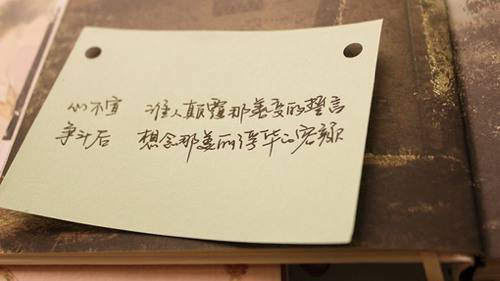 心不宣 谁人颠覆那善变的誓言
争斗后 想念那美丽浮华的容颜